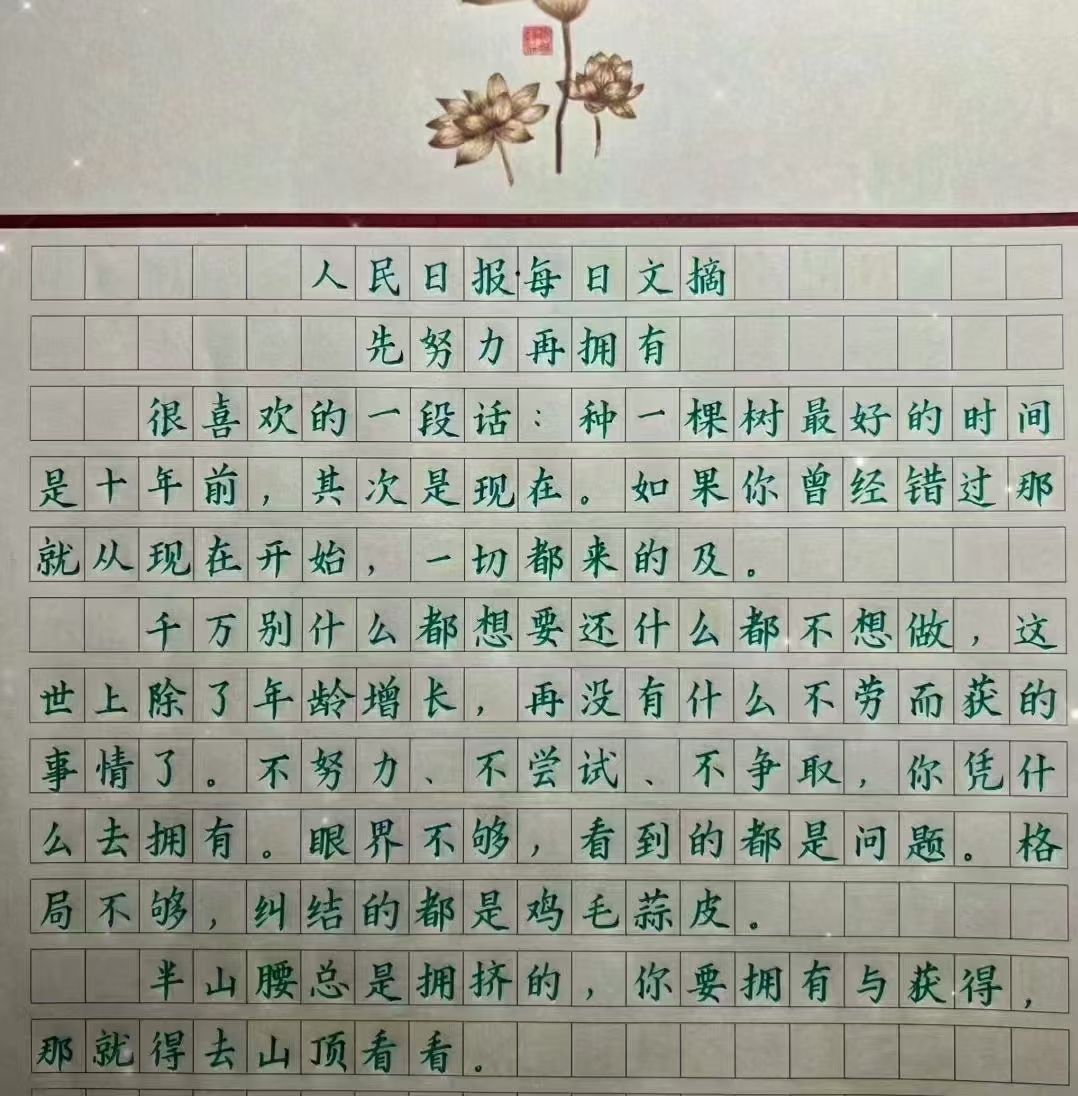 人民日报·每日文摘
先努力再拥有
很喜欢的一段话：种一棵树最好的时间
是十年前，其次是现在。如果你曾经错过那
就从现在开始，一切都来的及。
千万别什么都想要还什么都不想做，这
世上除了年龄增长，再没有什么不劳而获的
事情了。不努力、不尝试、不争取，你凭什
么去拥有。眼界不够，看到的都是问题。格
局不够，纠结的都是鸡毛蒜皮。
半山腰总是拥挤的，你要拥有与获得，
那就得去山顶看看。